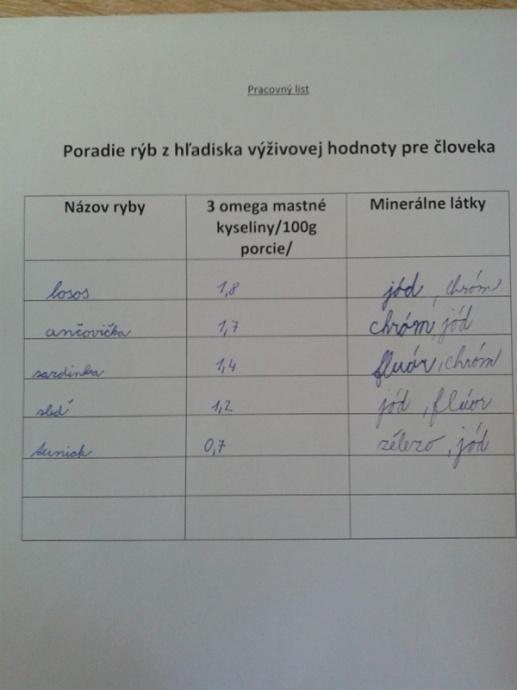 Pracovný list
Poradie rýb z hľadiska výživovej hodnoty pre človeka
Názov ryby 3 omega mastné kyseliny/100g porcie/ Minerálne látky
losos 1,8 jód, chróm
ančovička 1,7 chróm, jód
sardinka 1,4 fluór, chróm
sleď 1,2 jód, flúor
tuniak 0,7 zélezo, jód